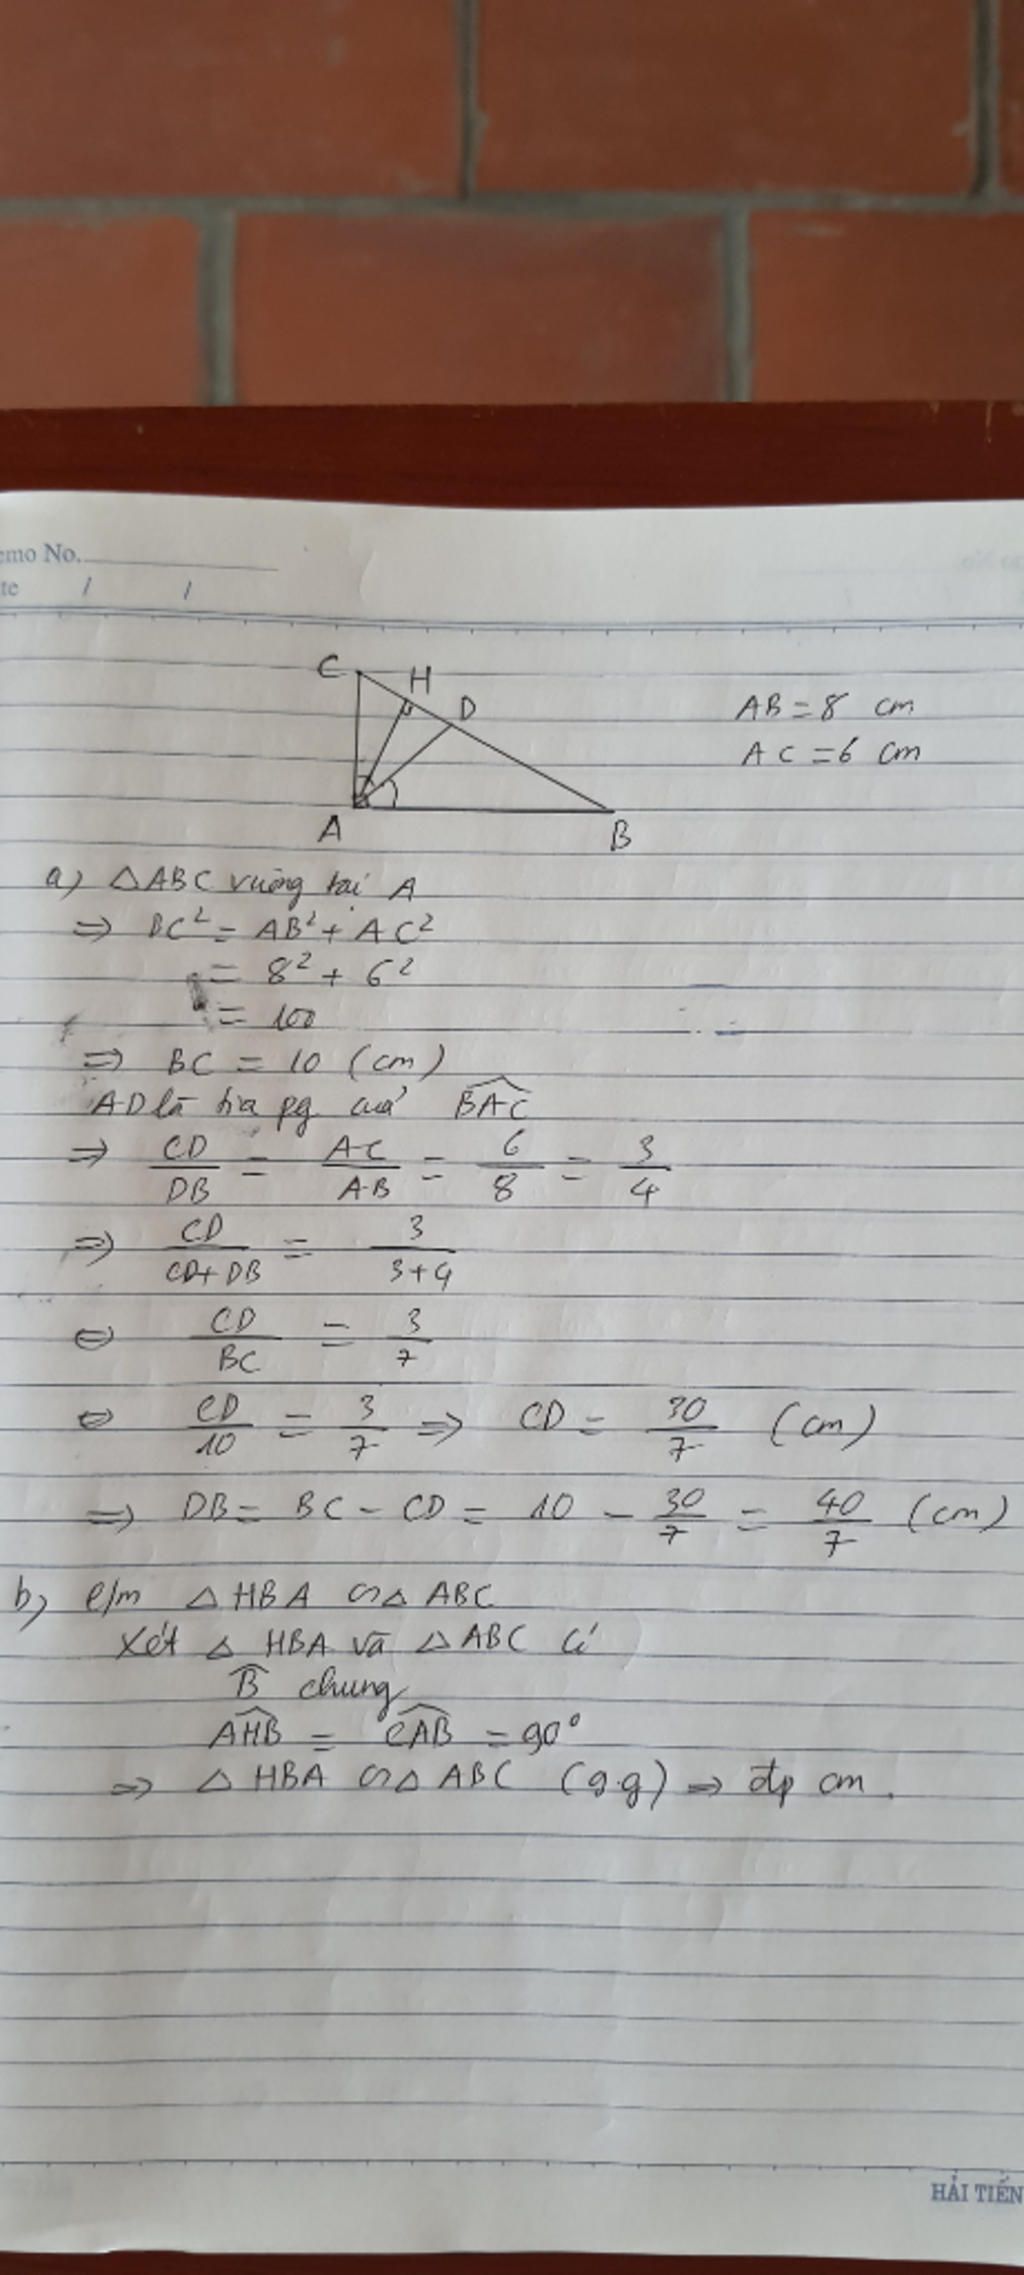 emo No.
te / /
C H D
AB = 8 cm
AC = 6 cm
A B
a) △ABC vuông tại A
=> BC² = AB² + AC²
= 8² + 6²
= 100
=> BC = 10 (cm)
AD là tia pg của \widehat{BAC}
=> CD/DB = AC/AB = 6/8 = 3/4
=> CD/(CD+DB) = 3/(3+4)
⇔ CD/BC = 3/7
⇔ CD/10 = 3/7 => CD = 30/7 (cm)
=> DB = BC - CD = 10 - 30/7 = 40/7 (cm)
b) c/m △HBA ∽ △ABC
Xét △ HBA và △ABC có
\widehat{B} chung
\widehat{AHB} = \widehat{CAB} = 90°
=> △HBA ∽ △ABC (g.g) => đp cm.
HẢI TIẾN